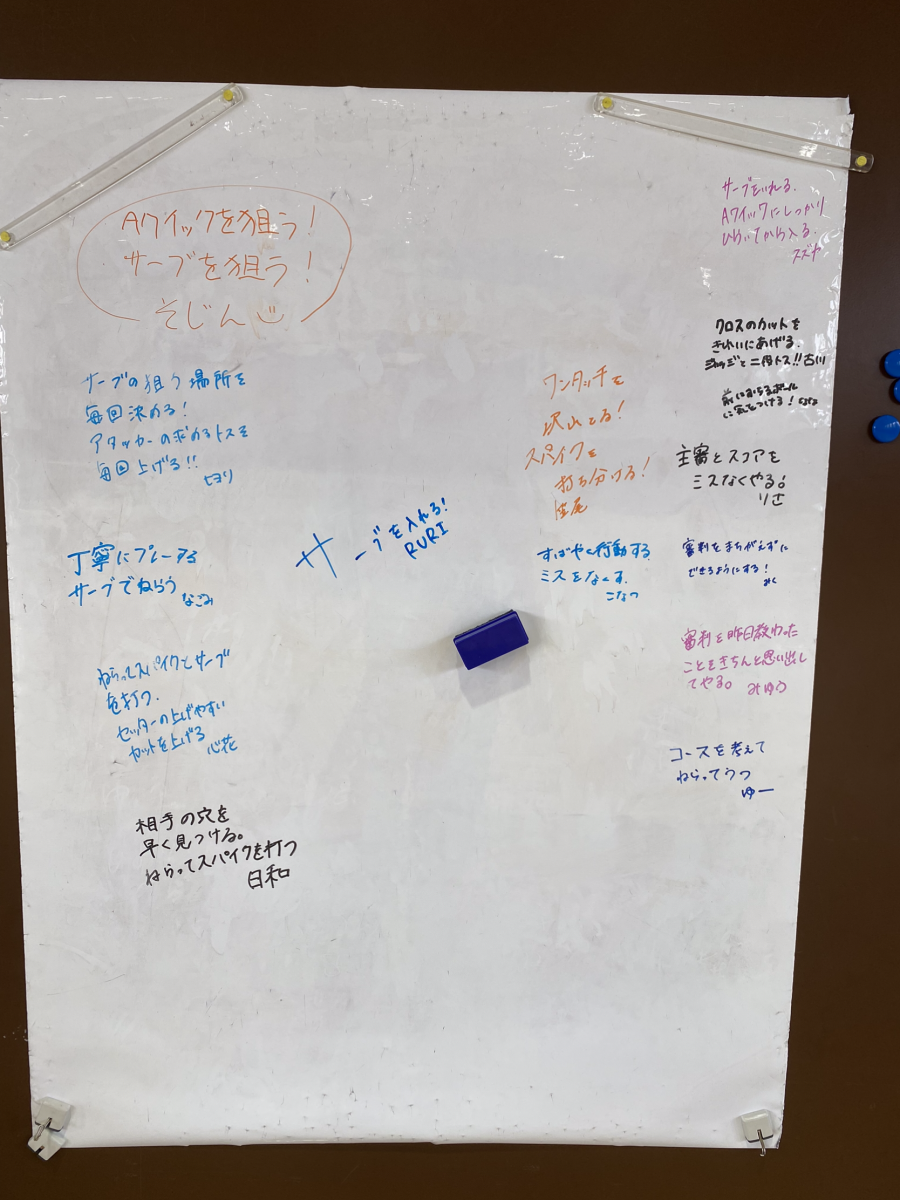 Aクイックを狙う!
サーブを狙う!
そじん
サーブの狙う場所を
毎回決める!
アタッカーの求めるトスを
毎回上げる!!
ヒヨリ
丁寧にプレーする
サーブでねらう
なごみ
ねらってスパイクとサーブ
を打つ.
セッターの上げやすい
カットを上げる
心花
相手の穴を
早く見つける。
ねらってスパイクを打つ
日和
サーブを入れる!
RURI
ワンタッチを
沢山とる!
スパイクを
打ち分ける!
すばやく行動する
ミスをなくす.
こなつ
サーブをいれる.
Aクイックにしっかり
ひらいてから入る.
スズヤ
クロスのカットを
きれいにあげる.
ジャッジと二段トス!!古川
前におちるボール
に気をつける!
主審とスコアを
ミスなくやる。
りさ
審判をまちがえずに
できるようにする!
みく
審判を昨日教わった
ことをきちんと思い出し
てやる。 みゆう
コースを考えて
ねらってうつ
ゆー